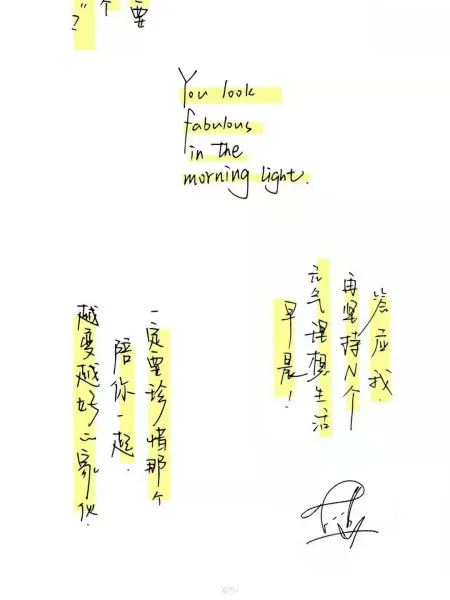 要
个
You look
fabulous
in the
morning light.
答应我.
再坚持N个
元气理想生活
早晨！
一定要珍惜那个
陪你一起.
越变越好的家伙.
XIYU